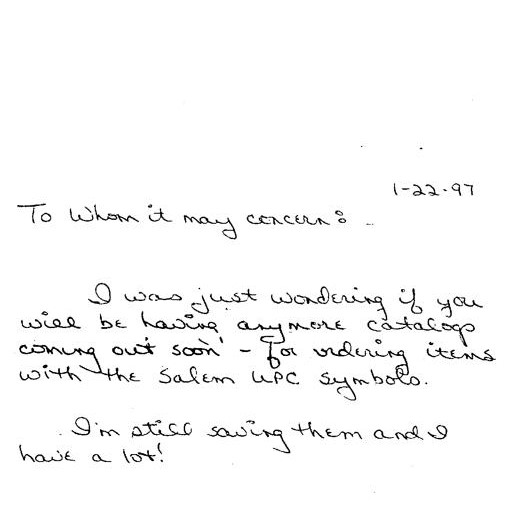 1-22-97
To Whom it may concern:
I was just wondering if you
will be having anymore catalogs
coming out soon - for ordering items
with the Salem UPC symbols.
I'm still saving them and I
have a lot!